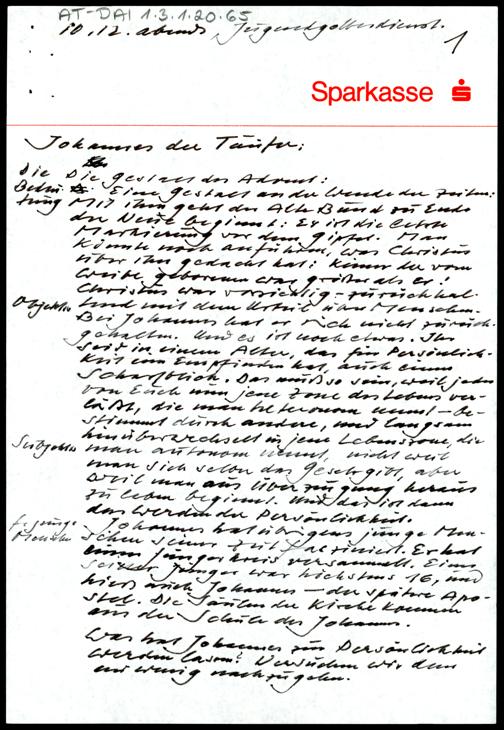 AT-DAI 1.3.1.20.65
10.12. abends Jugendgottesdienst.
1
Sparkasse
Johannes der Täufer:
Die Die Gestalt des Advent:
Bedeu- Eine Gestalt an der Wende der Zeiten:
tung Mit ihm geht der Alte Bund zu Ende
der Neue beginnt: Er ist die letzte
Markierung vor dem Gipfel. Man
könnte noch anführen, was Christus
über ihn gedacht hat: keiner der vom
Weibe geboren war größer als er!
Christus war vorsichtig - zurückhal-
Objektiv tend mit dem Urteil über Menschen.
Bei Johannes hat er sich nicht zurück-
gehalten. Und es ist noch etwas. Ihr
seid in einem Alter, das für Persönlich-
keit ein Empfinden hat, auch einen
Scharfblick. Das muß so sein, weil jeder
von Euch nun jene Zone des Lebens ver-
läßt, die man heteronom nennt - be-
stimmt durch andere, und langsam
hinüberwechselt in jene Lebenszone, die
Subjektiv man autonom nennt, nicht weil
man sich selber das Gesetz gibt, aber
weil man aus Überzeugung heraus
zu leben beginnt. Und das ist dann
das Werden der Persönlichkeit.
f. junge Johannes hat übrigens junge Men-
Menschen schen seiner Zeit fasziniert. Er hat
einen Jüngerkreis versammelt. Einer
seiner Jünger war höchstens 16, und
hieß auch Johannes - der spätere Apo-
stel. Die Säulen der Kirche kommen
aus der Schule des Johannes.
Was hat Johannes zur Persönlichkeit
werden lassen? Versuchen wir dem
ein wenig nachzugehen.